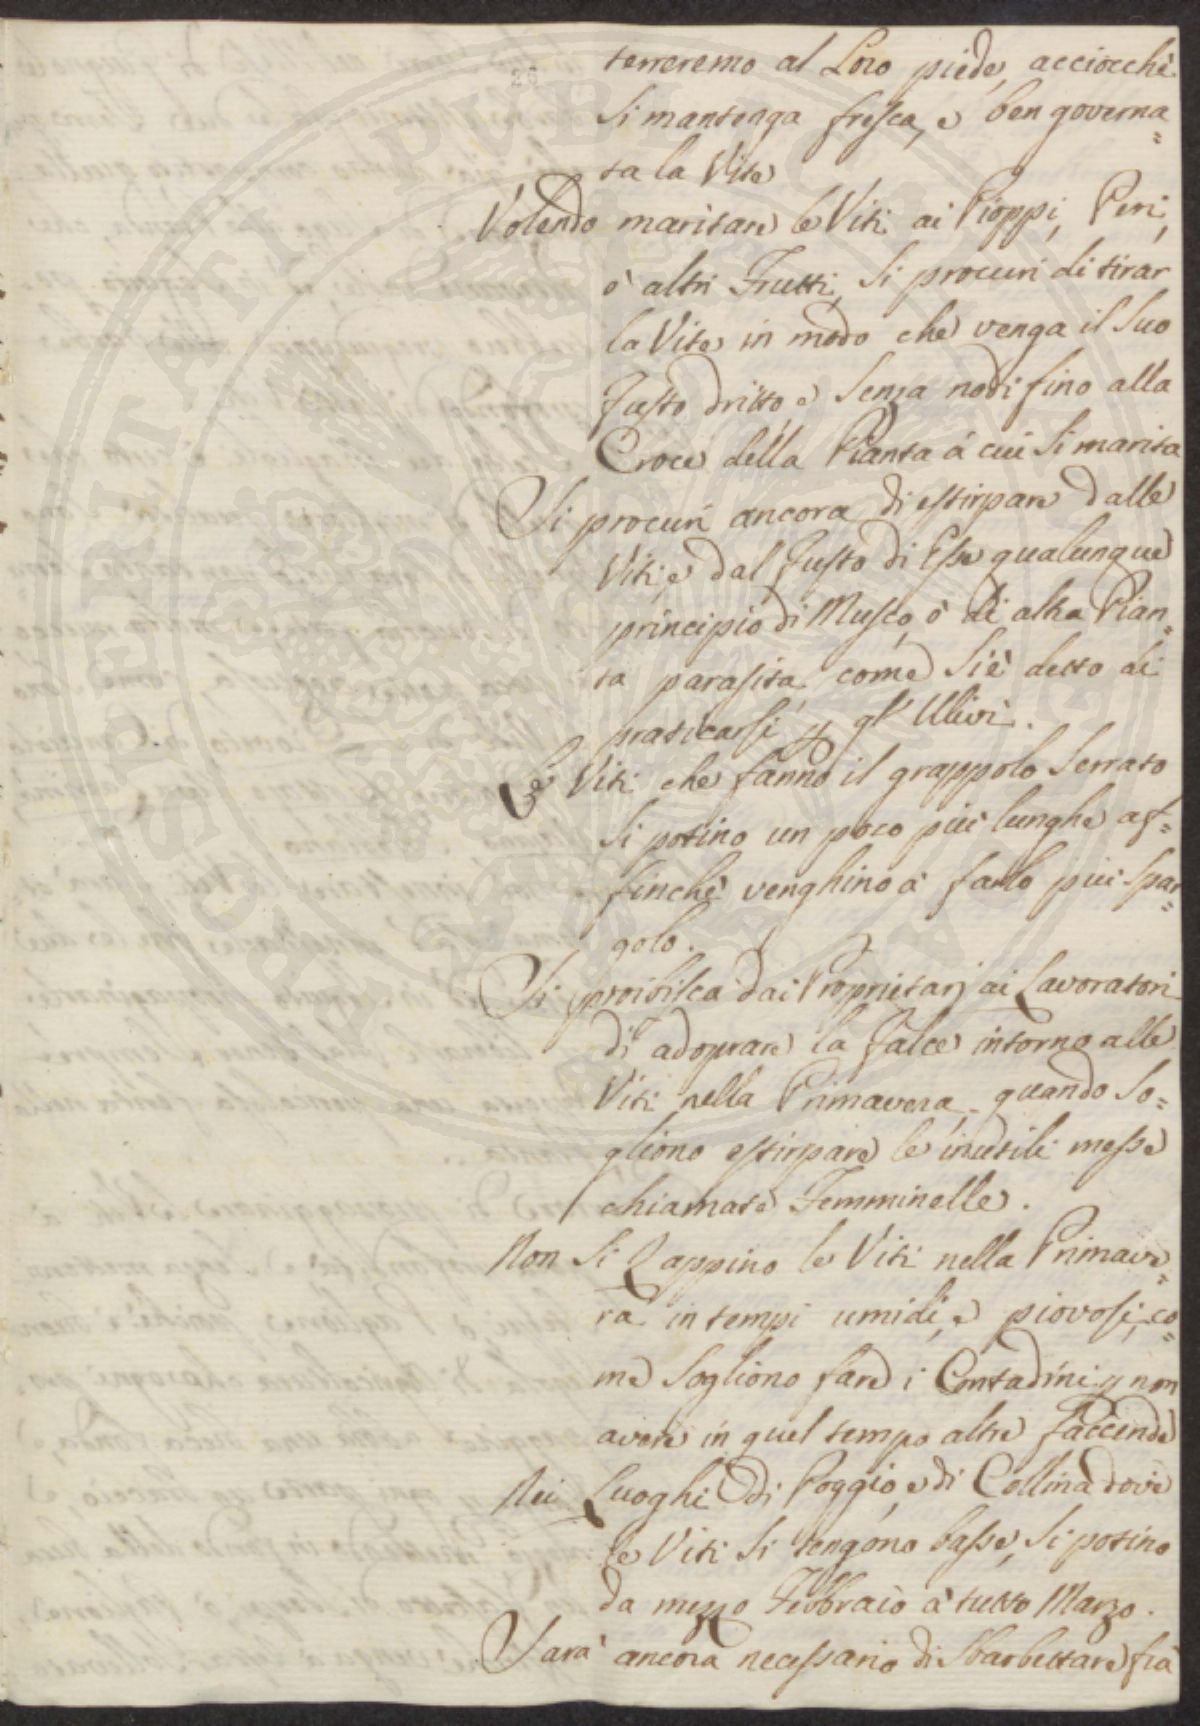 terreremo al Loro piede, acciocchè
si mantenga fresca, e ben governa=
ta la Vite
Volendo maritare le Viti ai Pioppi, Peri,
ò altri Frutti, si procuri di tirar
la Vite in modo che venga il suo
Fusto dritto e senza nodi fino alla
Croce della Pianta à cui si marita
Si procuri ancora di estirpare dalle
Viti, e dal Fusto di Esse qualunque
principio di Musco, ò di altra Pian=
ta parasita, come si è detto di
praticarsi p gl' Ulivi.
Le Viti che fanno il grappolo serrato
si potino un poco più lunghe af=
finchè venghino à farlo più spar=
golo.
Si proibisca dai Proprietarj ai Lavoratori
di adoprare la Falce intorno alle
Viti nella Primavera, quando so=
gliono estirpare le inutili messe
chiamate Femminelle.
Non si Zappino le Viti nella Primave=
ra in tempi umidi, e piovosi, co=
me sogliono fare i Contadini p non
avere in quel tempo altre faccende
Nei Luoghi di Poggio, e di Collina dove
le Viti si tengono basse, si potino
da mezzo Febbraio à tutto Marzo.
Sarà ancora necessario di sbarbettare fra
28
PROSPERITATI PUBLICAE